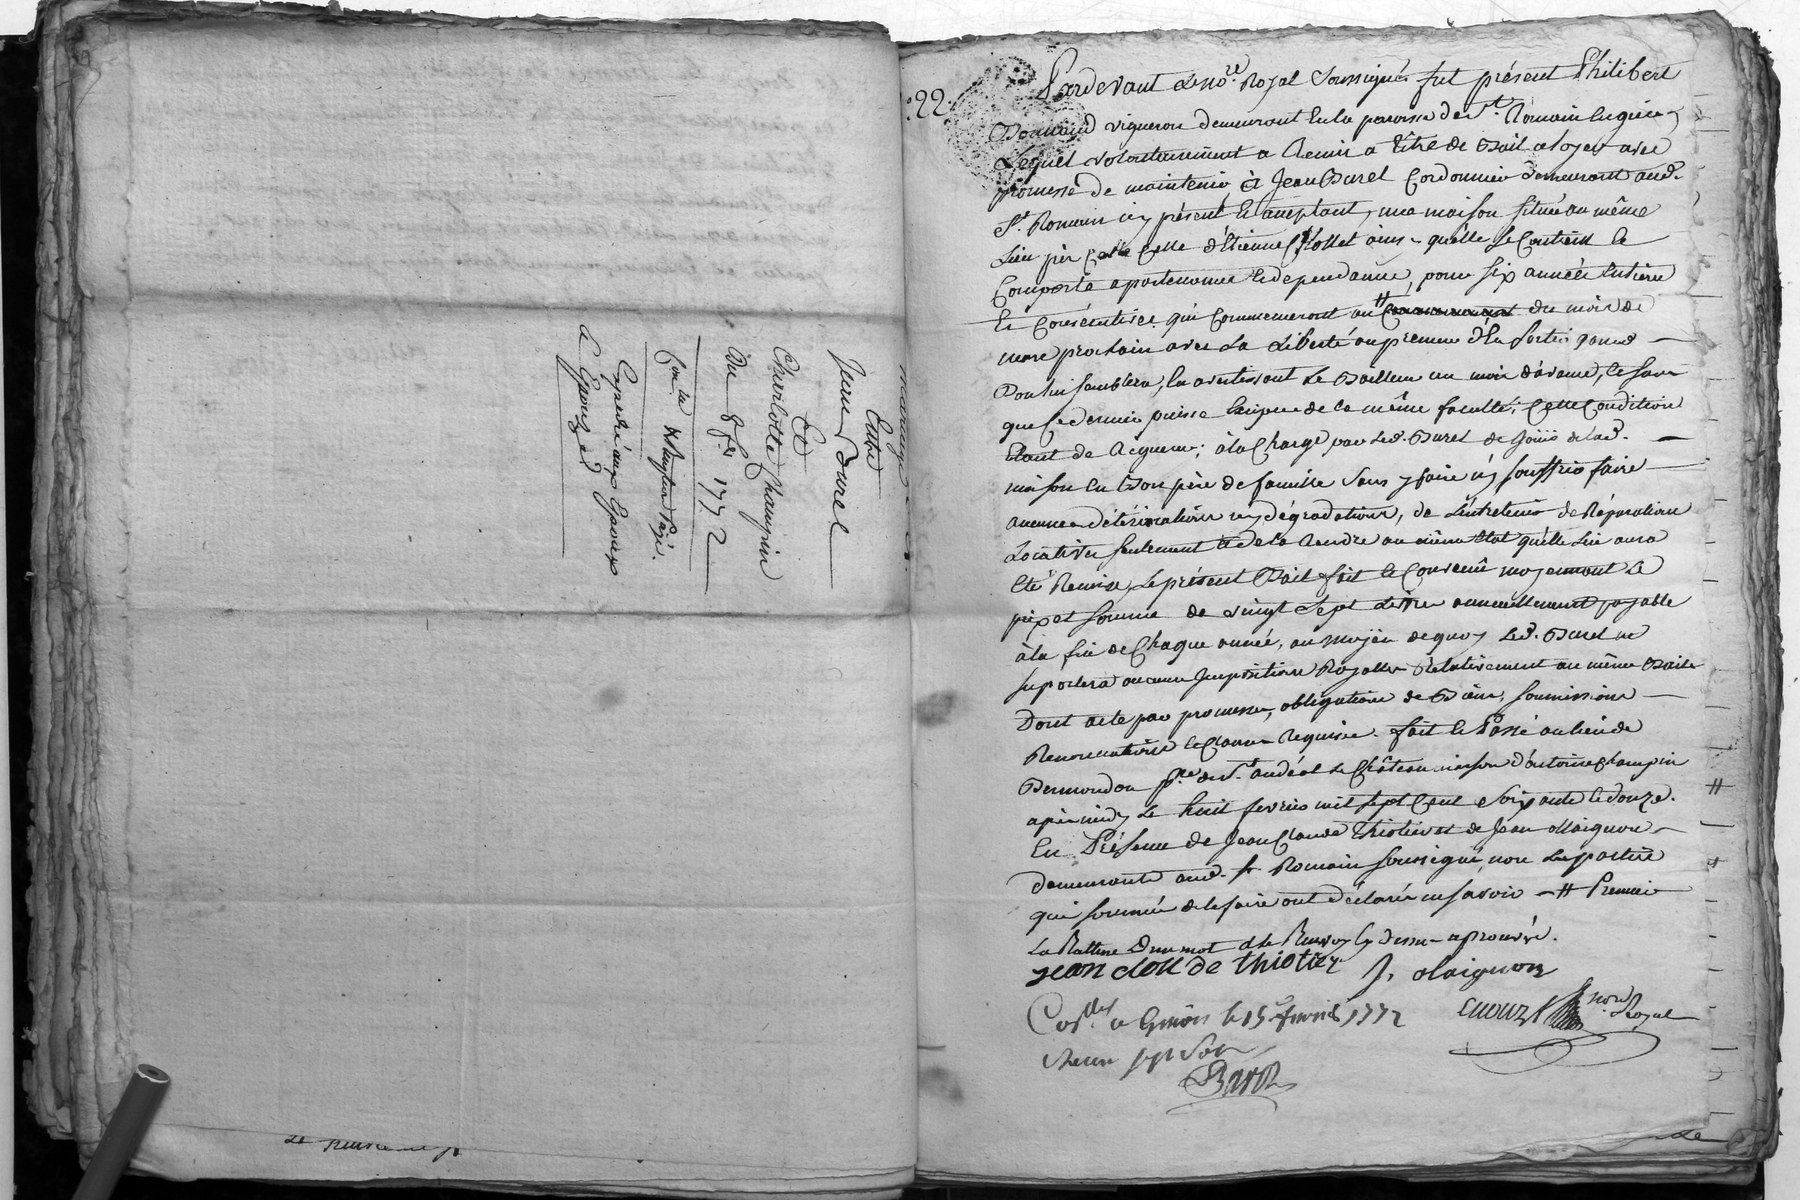 Mariage
Entre
Jean Burel
Et
Charlotte Champin
Du 8 fer 1772
Con. la
Expédié aux Epoux
Enouzed
22.
Pardevant Le nore. Royal soussigné fut présent Philibert
Bonnand vigneron demeurant en la paroisse de st. Romain en giéz
Lequel volontairement a Remis a titre de Bail a loyer avec
promesse de maintenir à Jean Burel Cordonnier demeurant aud.
St. Romain icy présent et acceptant, une maison située au même
Lieu près celle d'Etienne ainsy qu'elle se Contient et
Comporte apartenance et dependance, pour six année Entiere
Et Consécutive qui Commenceront au # du mois de
mars prochain avec la Liberté au preneur d'En sortir quand
Bon lui semblera, En avertissant le Bailleur un mois d'avance, et sans
que Ce dernier puisse de la même faculté, Cette Condition
Etant de rigueur; à la Charge par led. Burel de Jouir de lad.
maison En Bon père de famille sans y faire ny souffrir faire
aucunes déteriorations ny dégradations, de L'entretenir de Réparations
Locatives seulement Et de la Rendre au même Etat qu'elle lui aura
Eté Remise, Le présent Bail fait et Convenû moyennant Le
prix et somme de vingt sept Livres annuellement payable
à la fin de Chaque année, au moyen de quoy Led. Burel ne
suportera aucune Imposition Royalles Relativement au même Bail
Dont acte par promesses, obligations de Biens, soumissions
Renonciations et Clauses Requises. fait et Passé au lieu de
Bermondon psse. de St. andéol le Château maison d'antoine Champin
après midy Le huit fevrier mil sept Cent soixante et douze.
En Présence de Jean Claude Thiolier et de Jean olaignon
demeurants aud. St. Romain soussignés non Les parties
qui sommées de le faire ont déclaré ne savoir # Premier
La Rature d'un mot et le Renvoy cy dessus aprouvés.
jean clou de thiolier J. olaignon
Enouzd nore. Royal
Conllé. a Givors le 15 fevrier 1772
Reçu sept sols